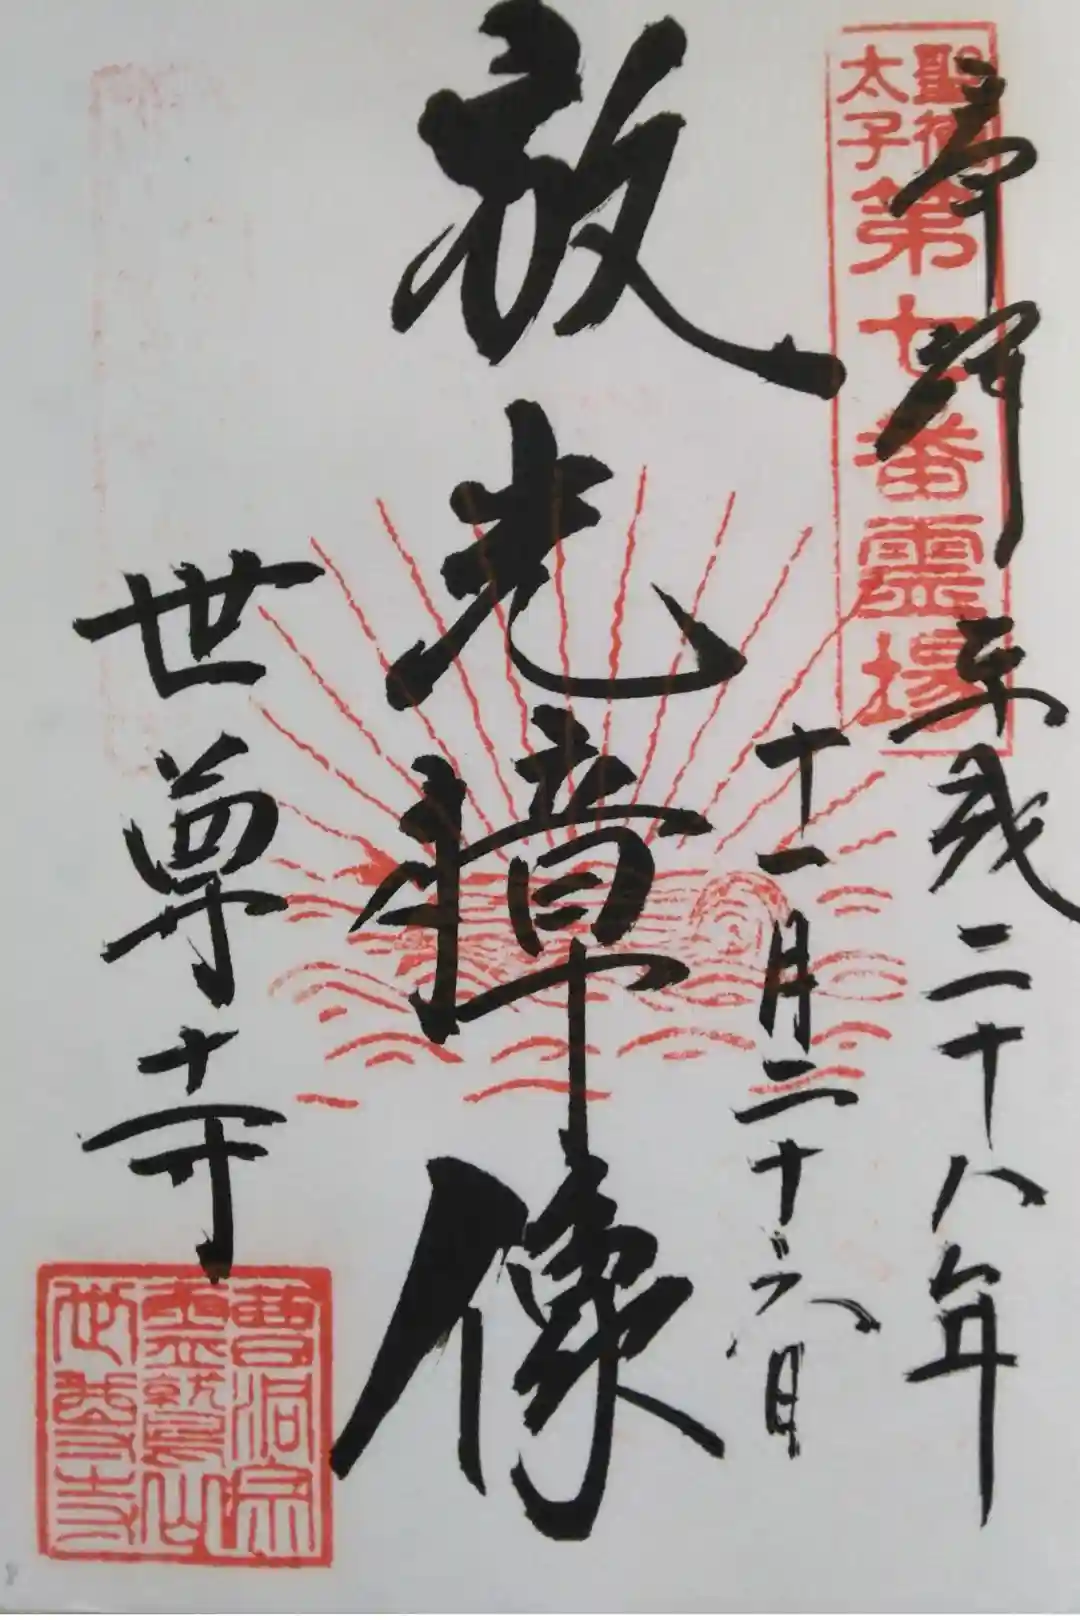 聖徳
太子
第七番靈場
奉拝
平成二十八年
十一月二十六日
放光樟像
世尊寺
曹洞宗
靈鷲山
世尊寺